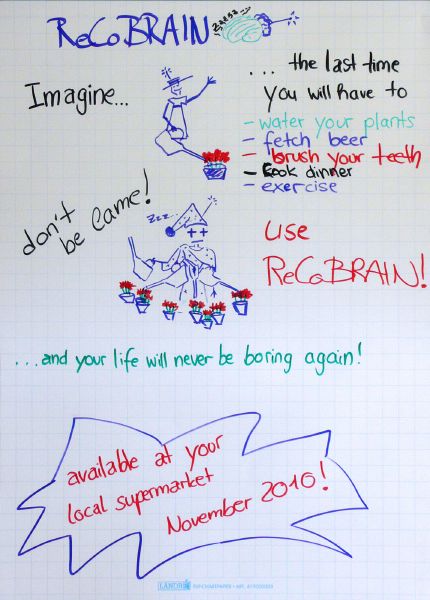 ReCoBRAIN
zzzzz
Imagine...
... the last time
you will have to
- water your plants
- fetch beer
- brush your teeth
- cook dinner
- exercise
don't
be lame!
zzz...
USE
ReCoBRAIN!
...and your life will never be boring again!
available at your
local supermarket
November 2010!
LANDRÉ